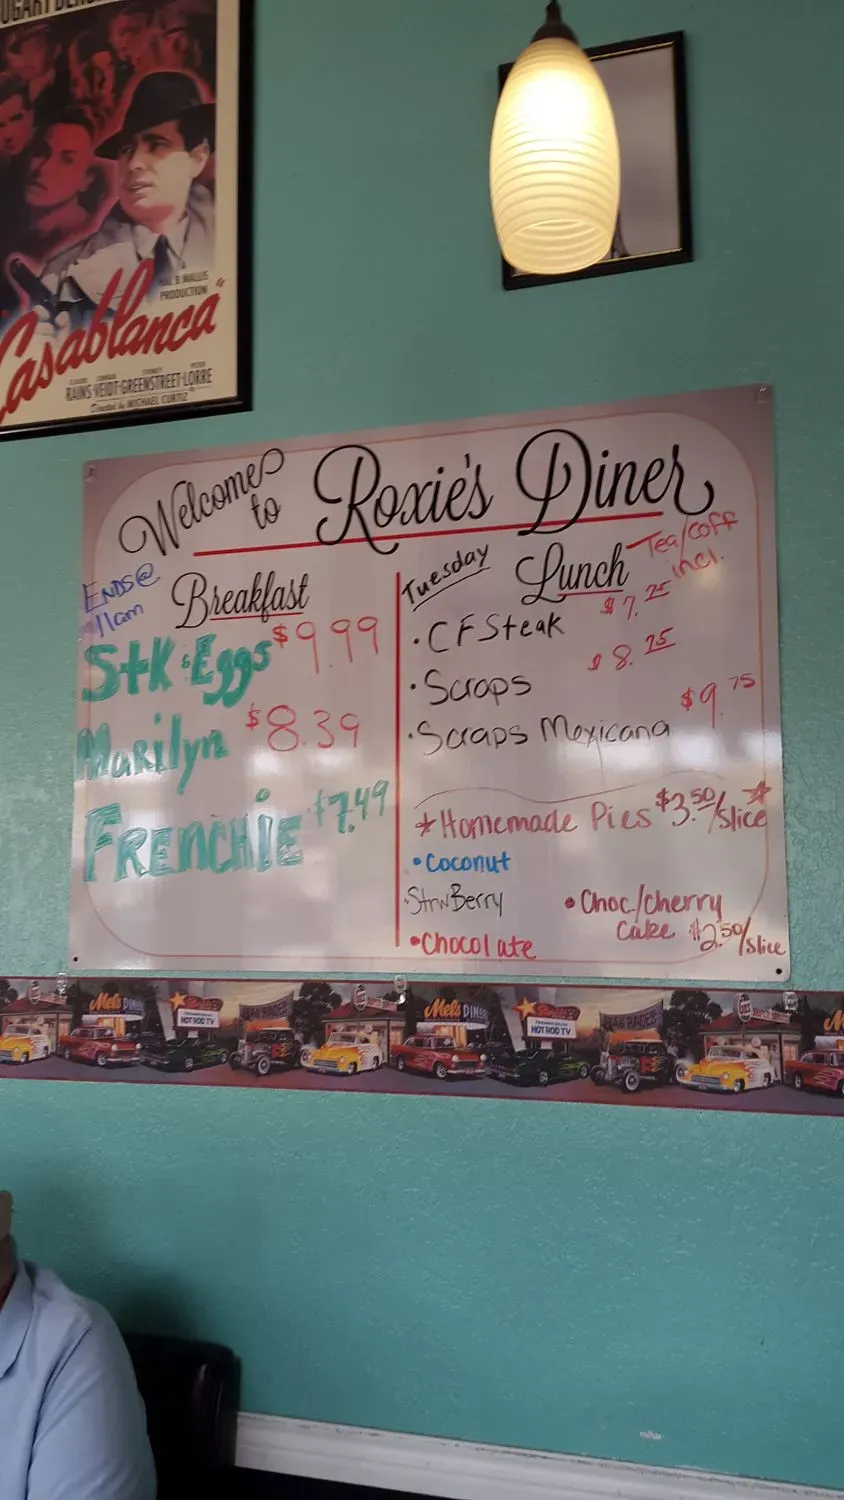 Casablanca
HAL B. WALLIS
PRODUCTION
RAINS·VEIDT·GREENSTREET·LORRE
Directed by MICHAEL CURTIZ
Welcome to Roxie's Diner
ENDS @
11am
Breakfast
Stk & Eggs $9.99
Marilyn $8.39
FRENCHIE $7.49
Tuesday Lunch Tea/coff
incl.
· CF Steak $7.25
· Scraps $8.25
· Scraps Mexicana $9.75
*Homemade Pies $3.50/slice*
• Coconut
· StrwBerry
• Chocolate
• Choc/cherry
Cake $2.50/slice
Mel's DINER
HOT ROD TV
DRAG RACES
Mel's DINER
HOT ROD TV
DRAG RACES